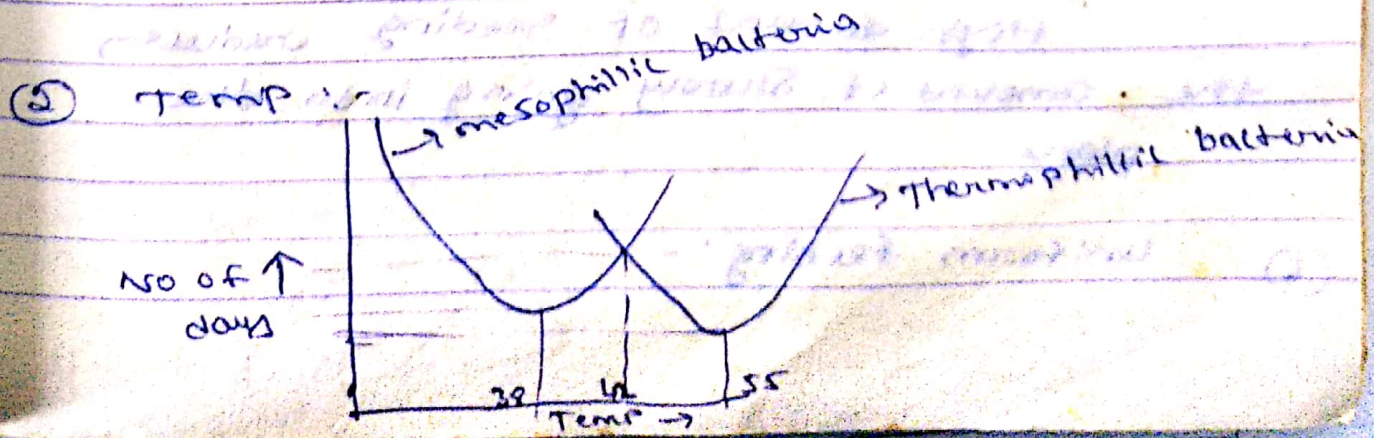 mesophillic bacteria
⑤ Temp :-
Thermophillic bacteria
No of ↑
days
38 42 55
Temp →